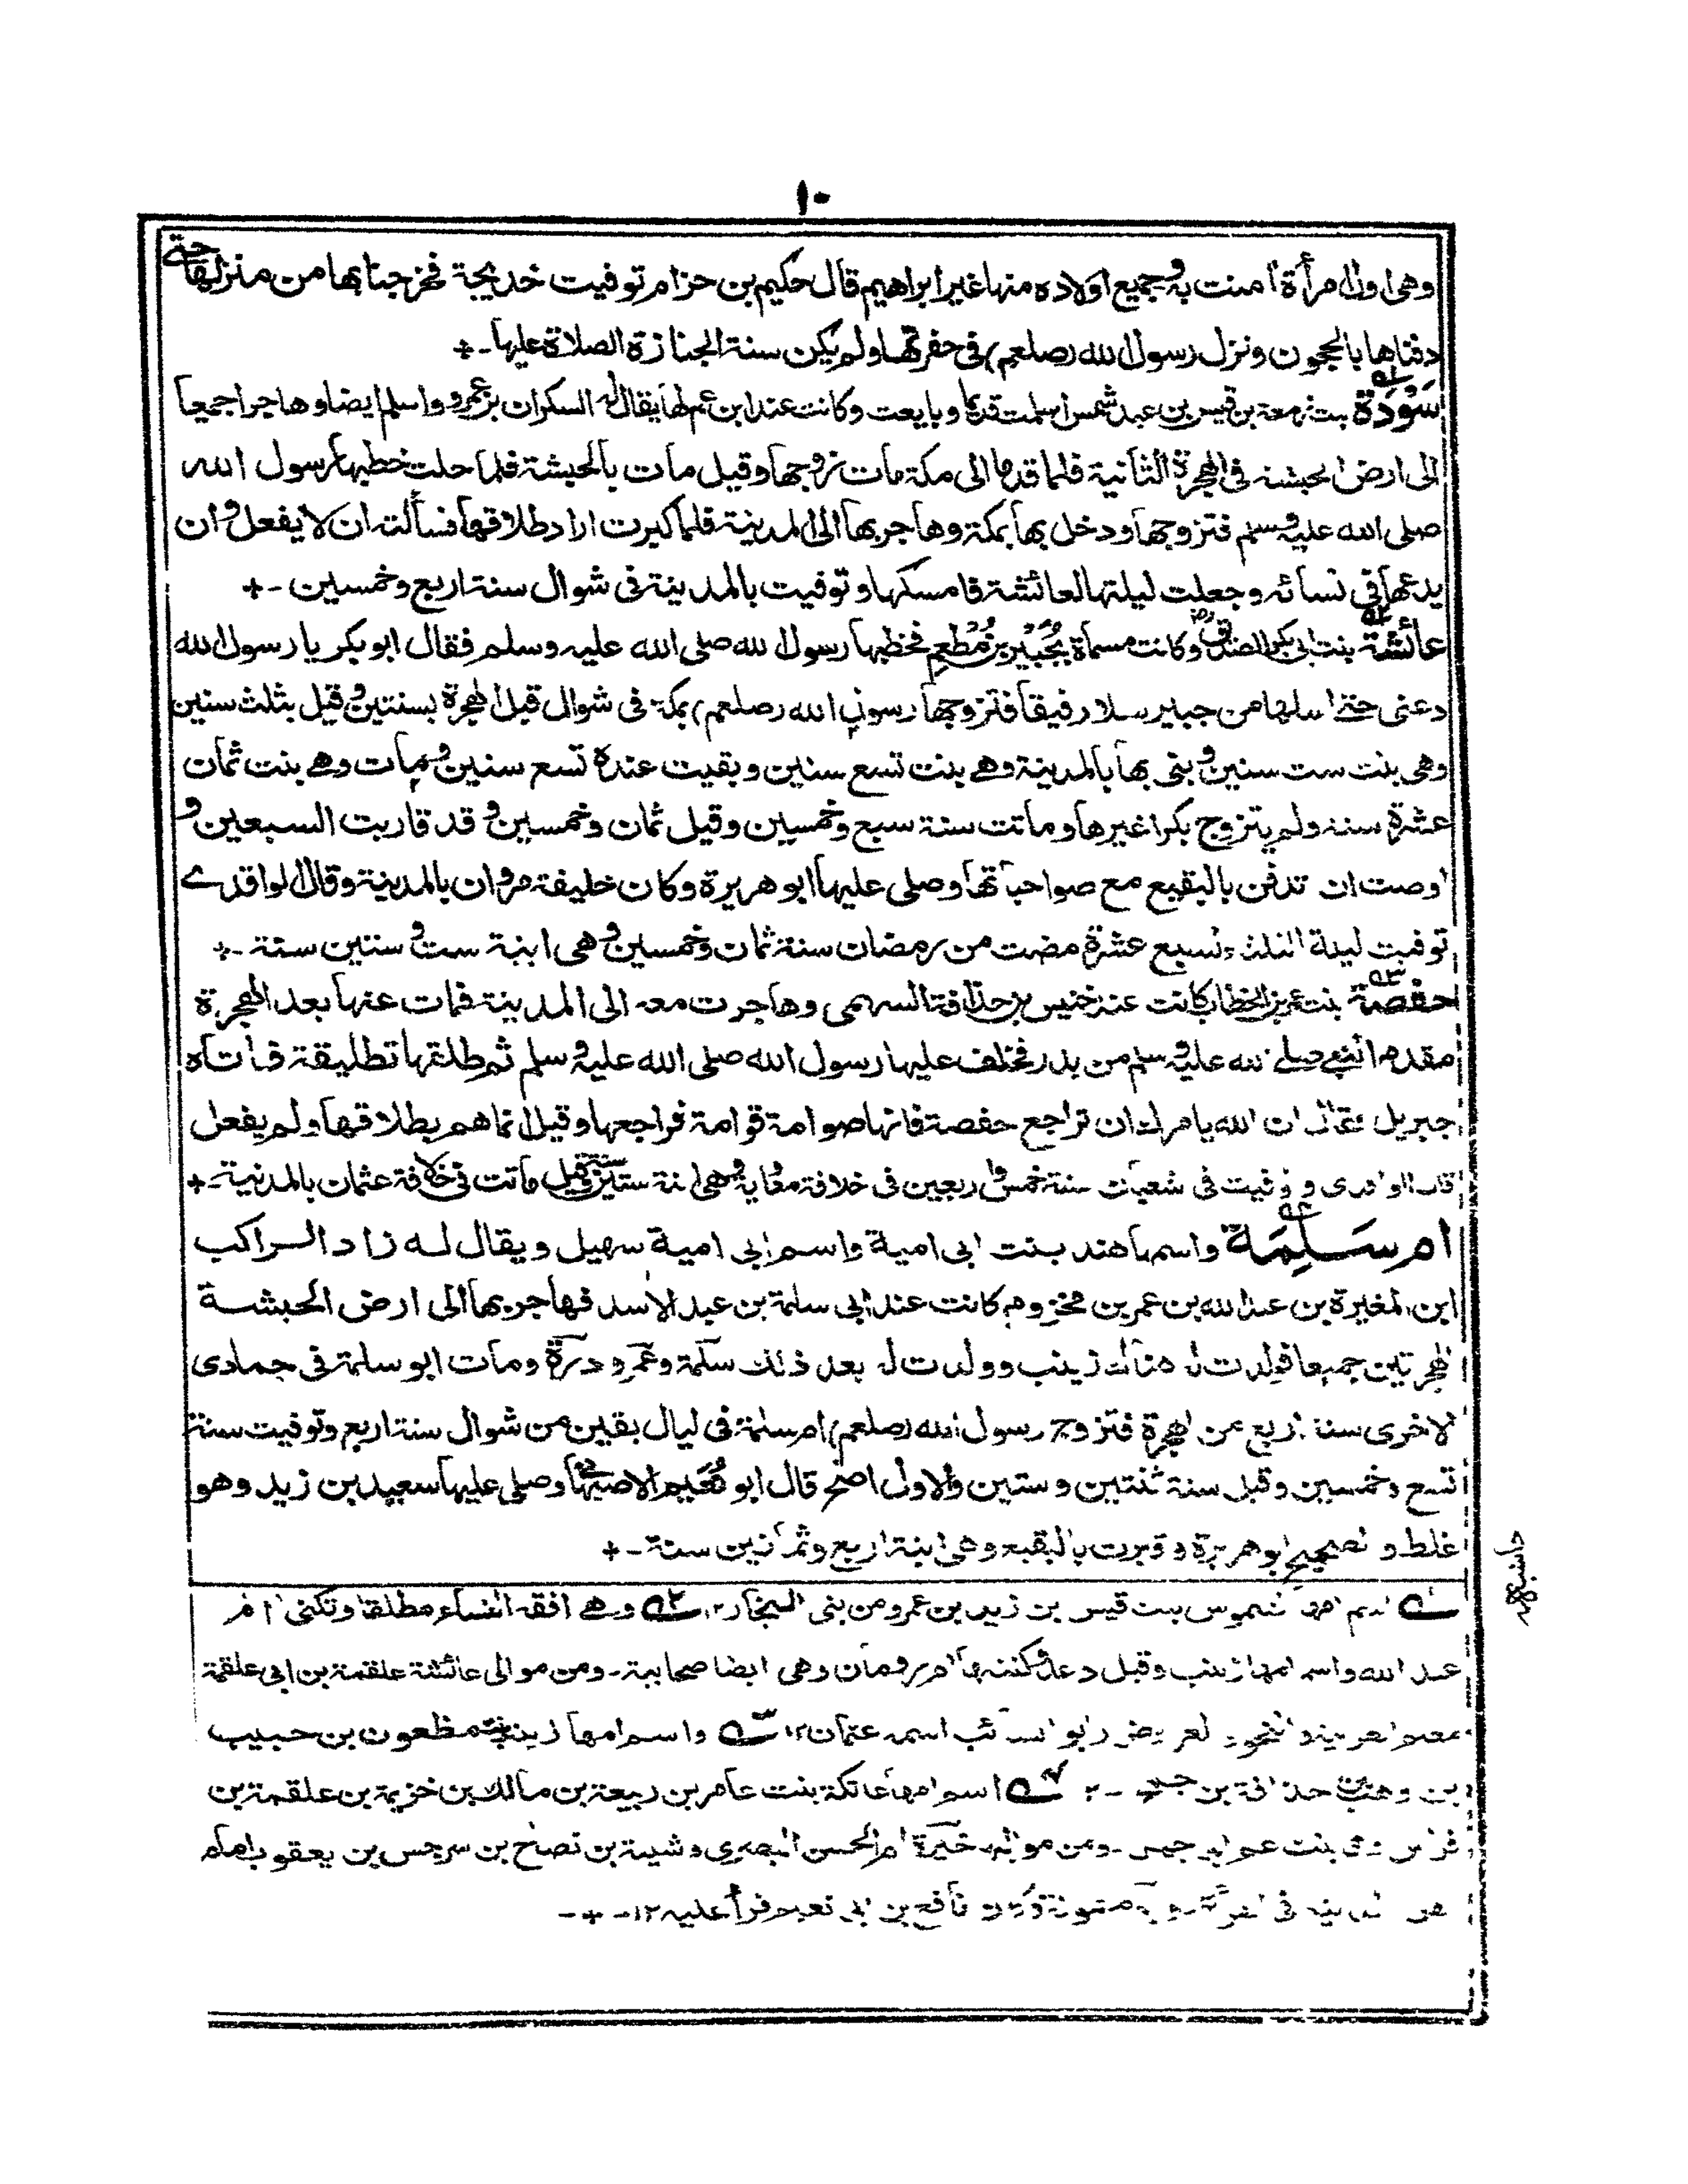 ١٠
وهى اول امرأة آمنت به وجميع اولاده منها غير ابراهيم قال حكيم بن حزام توفيت خديجة فخرجنا بها من منزلها حتى
دفناها بالحجون ونزل رسول الله (صلعم) فى حفرتها ولم يكن سنة الجنازة الصلاة عليها -+
سَوْدَة بنت زمعة بن قيس بن عبد شمس اسلمت قديما وبايعت وكانت عند ابن عم لها يقال له السكران بن عمرو واسلم ايضا وهاجرا جميعا
الى ارض الحبشه فى الهجرة الثانية فلما قدما الى مكة مات زوجها وقيل مات بالحبشة فلما حلت خطبها رسول الله
صلى الله عليه وسلم فتزوجها ودخل بها بمكة وهاجر بها الى المدينة فلما كبرت اراد طلاقها فسألته ان لا يفعل وان
يدعها فى نسائه وجعلت ليلتها لعائشة فامسكها وتوفيت بالمدينة فى شوال سنة اربع وخمسين -+
عائشة بنت ابى بكر الصديق رض وكانت مسماة بجُبَيْر بن مُطْعِم فخطبها رسول الله صلى الله عليه وسلم فقال ابو بكر يا رسول الله
دعنى حتى اسلها من جبير سلا رفيقا فتزوجها رسول الله (صلعم) بمكة فى شوال قبل الهجرة بسنتين وقيل بثلث سنين
وهى بنت ست سنين وبنى بها بالمدينة وهى بنت تسع سنين وبقيت عنده تسع سنين ومات وهى بنت ثمان
عشرة سنة ولم يتزوج بكرا غيرها وماتت سنة سبع وخمسين وقيل ثمان وخمسين وقد قاربت السبعين و
اوصت ان تدفن بالبقيع مع صواحباتها وصلى عليها ابو هريرة وكان خليفة مروان بالمدينة وقال الواقدى
توفيت ليلة الثلثاء لسبع عشرة مضت من رمضان سنة ثمان وخمسين وهى ابنة ست وستين سنة -+
حفصة بنت عمر بن الخطاب كانت عند خنيس بن حذافة السهمى وهاجرت معه الى المدينة فمات عنها بعد الهجرة
مقدم النبى صلى الله عليه وسلم من بدر فخلف عليها رسول الله صلى الله عليه وسلم ثم طلقها تطليقة فاتاه
جبريل فقال ان الله يامرك ان تراجع حفصة فانها صوامة قوامة فراجعها وقيل انما هم بطلاقها ولم يفعل
قال الواقدى وتوفيت فى شعبان سنة خمس واربعين فى خلافة معاوية وهى ابنة ستين سنة وقيل ماتت فى خلافة عثمان بالمدنية -+
ام سَلَمَة واسمها هند بنت ابى امية واسم ابى امية سهيل ويقال له زاد الراكب
ابن المغيرة بن عبد الله بن عمر بن مخزوم كانت عند ابى سلمة بن عبد الاسد فهاجر بها الى ارض الحبشة
الهجرتين جميعا فولدت له هناك زينب وولدت له بعد ذلك سلمة وعمر ودرة ومات ابو سلمة فى جمادى
الاخرى سنة اربع من الهجرة فتزوج رسول الله (صلعم) ام سلمة فى ليال بقين من شوال سنة اربع وتوفيت سنة
تسع وخمسين وقيل سنة ثنتين وستين والاول اصح قال ابو نُعَيم الاصبهانى وصلى عليها سعيد بن زيد وهو
غلط والصحيح ابو هريرة وقبرت بالبقيع وهى ابنة اربع وثمانين سنة -+
حاشيه
١ه اسم امها شموس بنت قيس بن زيد بن عمرو من بنى النجار ١٢ ٢ه وهى افقه النساء مطلقا وتكنى ام
عبد الله واسم امها زينب وقيل دعد وكنيتها ام رومان وهى ايضا صحابية - ومن موالى عائشة علقمة بن ابى علقمة
وابو السائب اسمه عثمان ١٢ ٣ه واسم امها زينب بنت مظعون بن حبيب
بن وهب بن حذافة بن جمح - ١٢ ٤ه اسم امها عاتكة بنت عامر بن ربيعة بن مالك بن خزيمة بن علقمة بن
فراس ومن مواليها خيرة ام الحسن البصرى وشيبة بن نصاح بن سرجس بن يعقوب امام
نافع بن ابى نعيم قرأ عليه ١٢ -+-